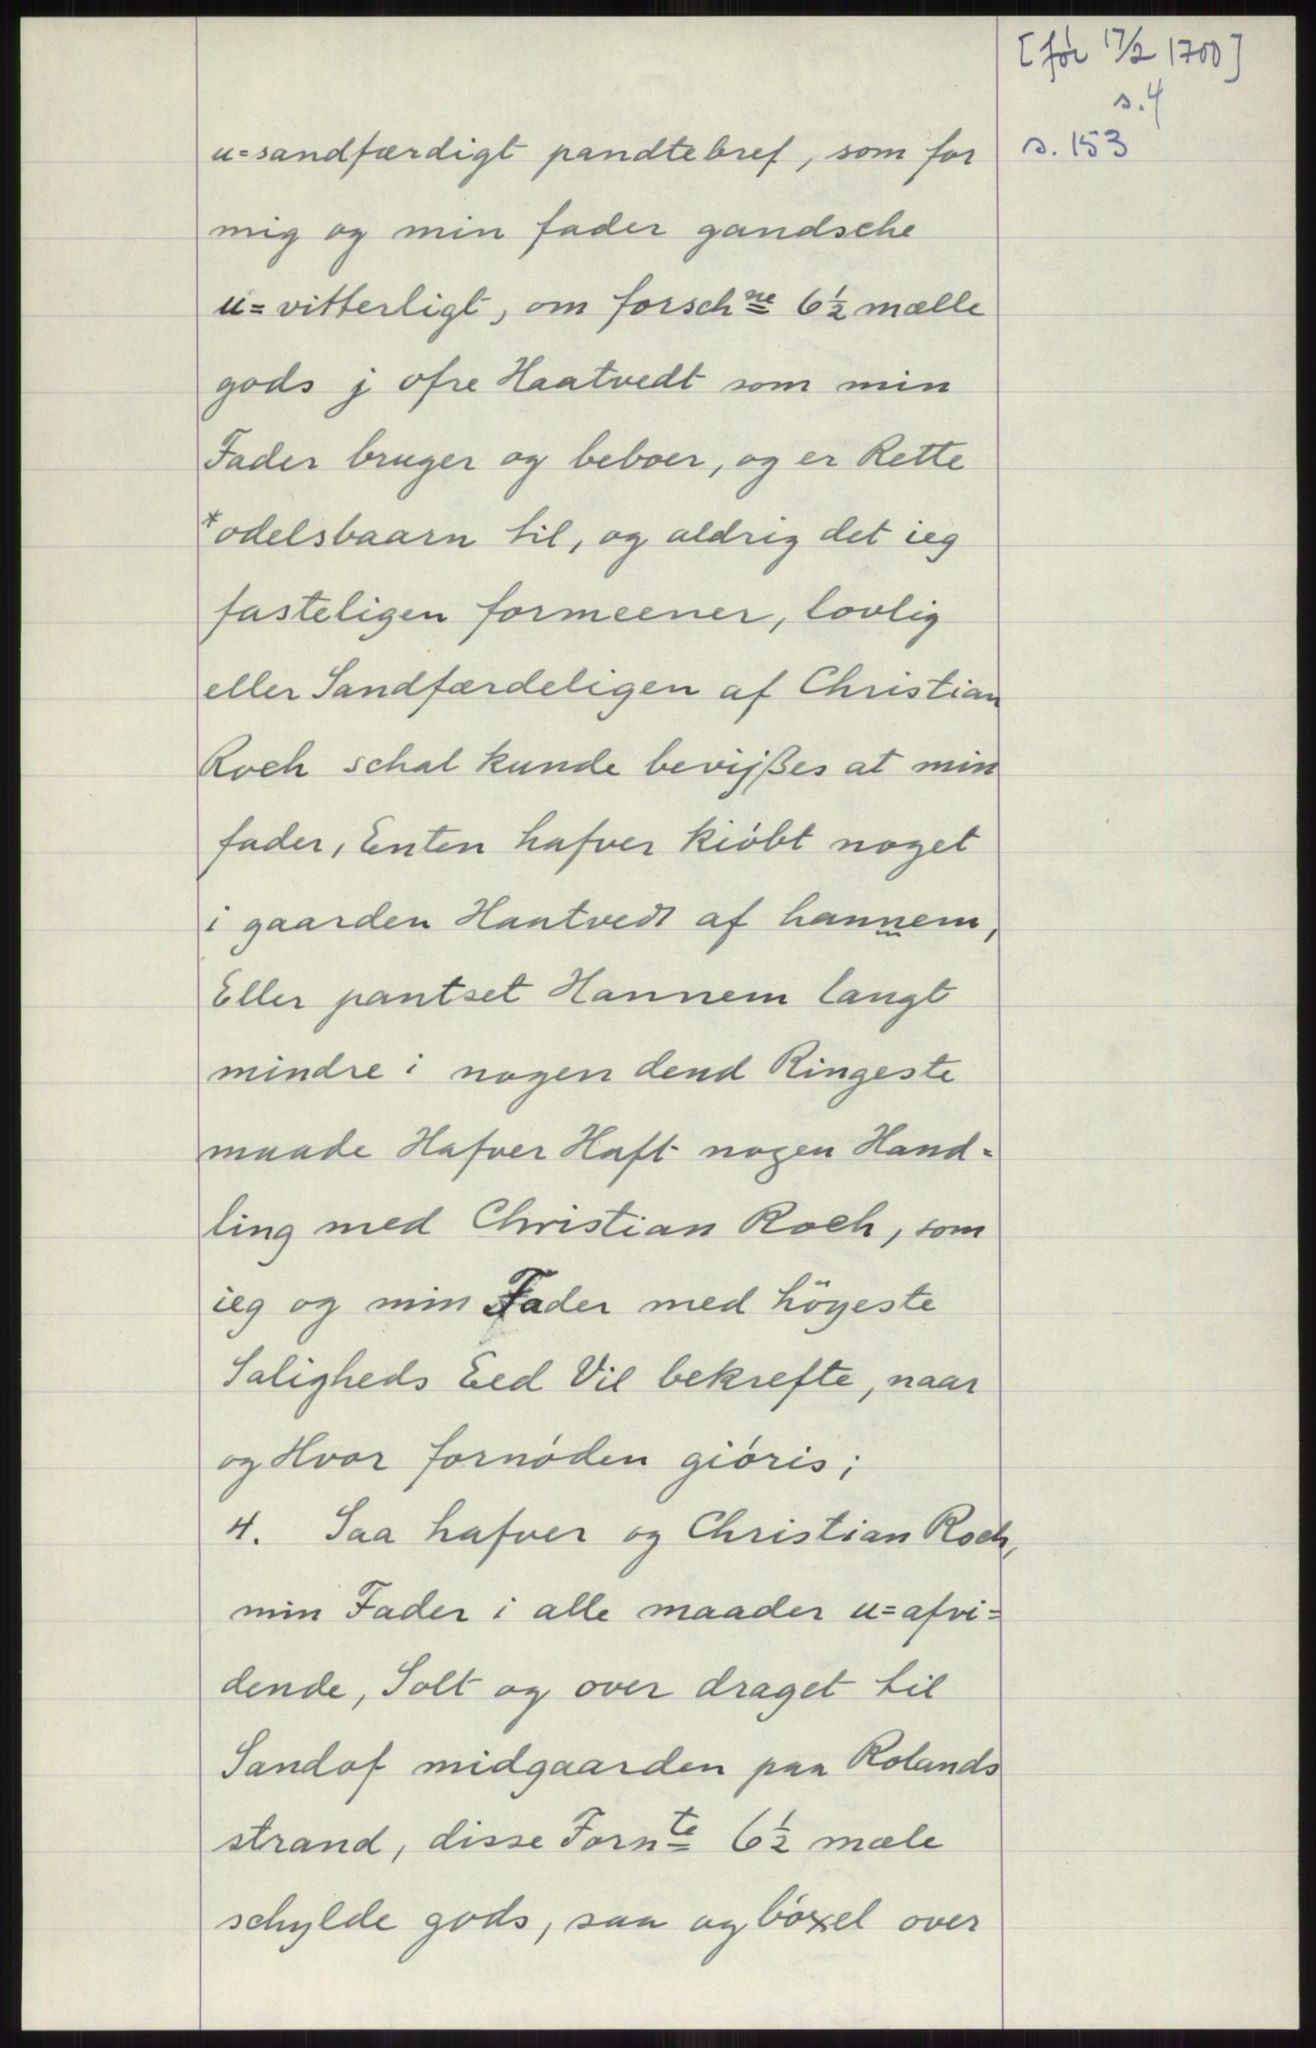 [før 17/2 1700]
s. 4
s. 153
u=sandfærdigt pandtebref, som for
mig og min fader gandsche
u=vitterligt, om forschne 6½ mælle
gods j ofre Haatvedt som min
Fader bruger og beboer, og er Rette
*odelsbaarn til, og aldrig det ieg
fasteligen formeener, lovlig
eller Sandfærdeligen af Christian
Roch schal kunde bevijßes at min
fader, Enten hafver kióbt noget
i gaarden Haatvedt af hannem,
Eller pantset Hannem langt
mindre i nogen dend Ringeste
maade Hafver Haft nogen Hand=
ling med Christian Roch, som
ieg og min Fader med högeste
Saligheds Eed Vil bekrefte, naar
og Hvor fornóden gióris;
4. Saa hafver og Christian Roch,
min Fader i alle maader u=afvi=
dende, Solt og over draget til
Sandof midgaarden paa Rolands
strand, disse Fornte 6½ mæle
schylde gods, saa og bóxel over